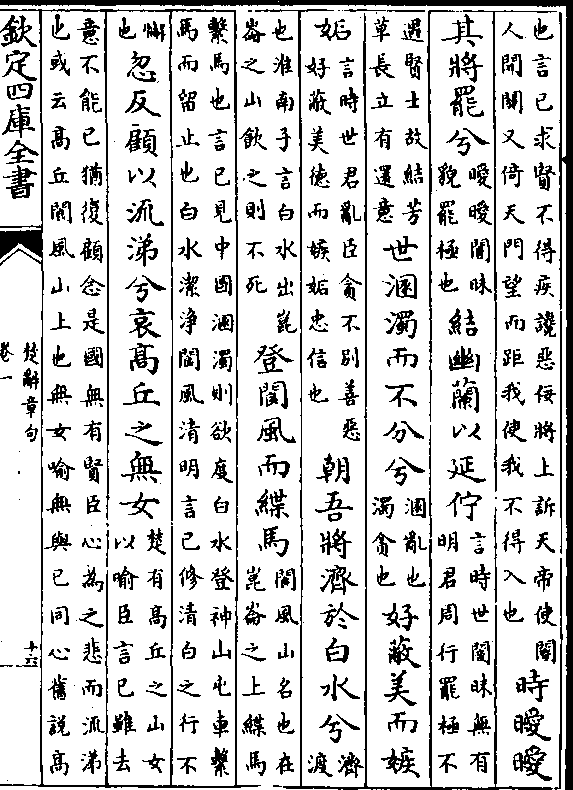 也言已求賢不得疾讒惡佞將上訴天帝使閽
人開關又倚天門望而距我使我不得入也
時曖曖
其將罷兮
曖曖闇昧
貌罷極也
結幽蘭以延佇
言時世闇昧無有
明君周行罷極不
遇賢士故結芳
草長立有還意
世溷濁而不分兮
溷亂也
濁貪也
好蔽美而嫉
妬
言時世君亂臣貪不别善惡
好蔽美德而嫉妬忠信也
朝吾將濟於白水兮
濟
渡
也淮南子言白水出崑
崙之山飲之則不死
登閬風而緤馬
閬風山名也在
崑崙之上緤馬
繫馬也言已見中國溷濁則欲度白水登神山屯車繫
馬而留止也白水潔淨閬風清明言已修清白之行不
懈
也
忽反顧以流涕兮哀髙丘之無女
楚有髙丘之山女
以喻臣言已雖去
意不能已猶復顧念是國無有賢臣心為之悲而流涕
也或云髙丘閬風山上也無女喻無與已同心舊説髙
欽定四庫全書
楚辭章句
卷一
十六